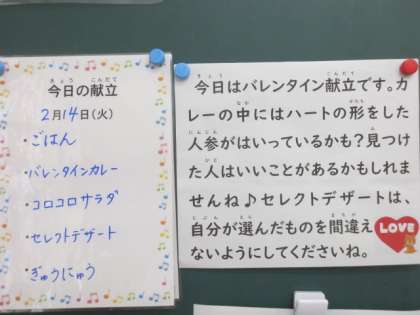 きょう こんだて
今日の献立
2月14日(火)
・ごはん
・バレンタインカレー
・コロコロサラダ
・セレクトデザート
・ぎゅうにゅう
きょう こんだて
今日はバレンタイン献立です。カ
なか かたち
レーの中にはハートの形をした
にんじん み
人参がはいっているかも?見つけ
ひと
た人はいいことがあるかもしれま
せんね♪セレクトデザートは、
じぶん えら まちが
自分が選んだものを間違え
ないようにしてくださいね。
LOVE